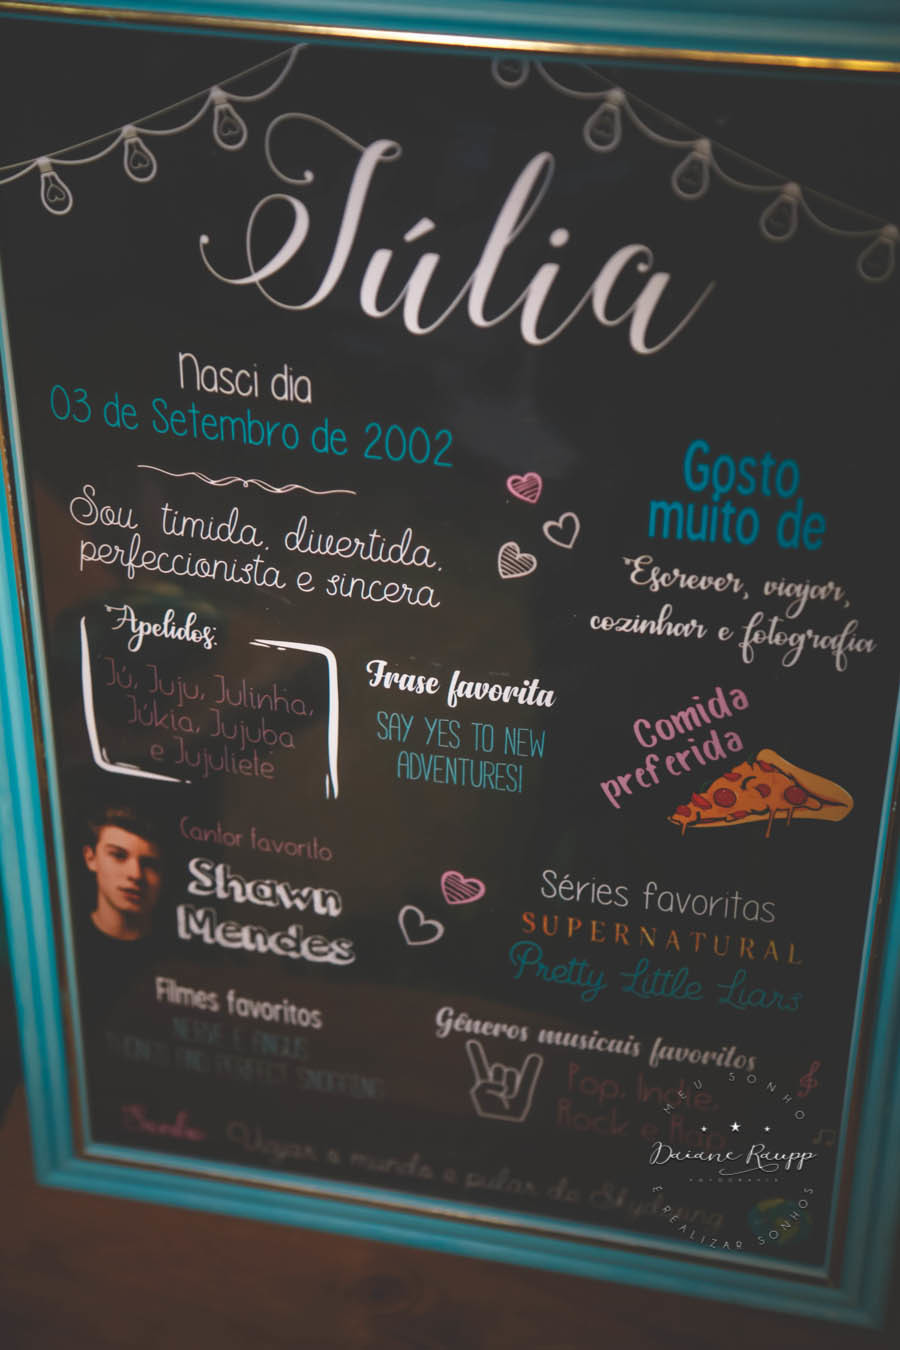 Júlia
Nasci dia
03 de Setembro de 2002
Sou tímida, divertida,
perfeccionista e sincera
Gosto
muito de
Escrever, viajar,
cozinhar e fotografia
Apelidos:
Jú, Juju, Julinha,
Júkia, Jujuba
e Jujuliete
Frase favorita
SAY YES TO NEW
ADVENTURES!
Comida
preferida
Cantor favorito
Shawn
Mendes
Séries favoritas
SUPERNATURAL
Pretty Little Liars
Filmes favoritos
NERVE E ANGUS
THONGS AND PERFECT SNOGGING
Gêneros musicais favoritos
Pop, Indie,
Rock e Rap
Sonho
Viajar o mundo e pular de Skydiving
MEU SONHO
Daiane Raupp
FOTOGRAFIA
É REALIZAR SONHOS